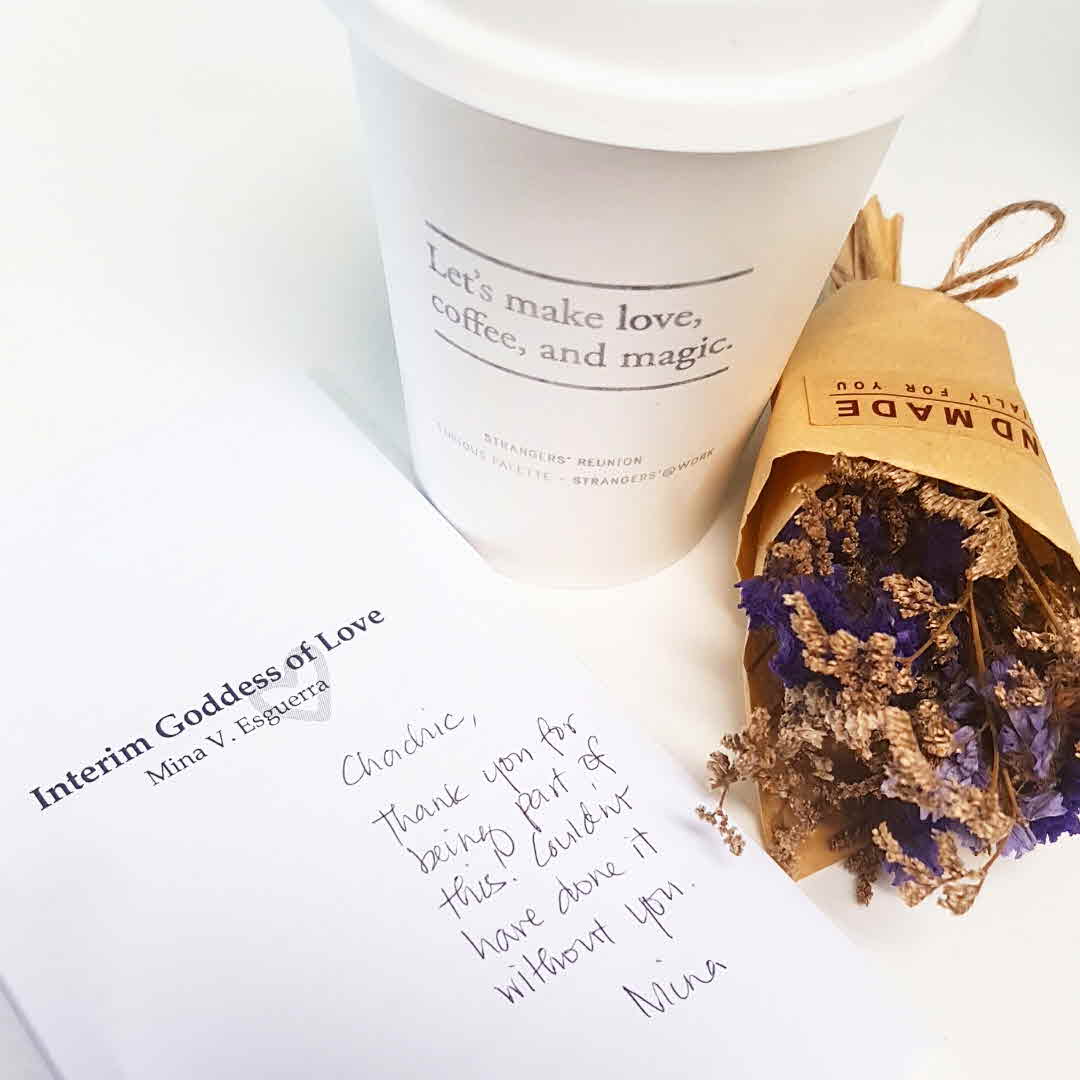 Let's make love,
coffee, and magic.
STRANGERS' REUNION
CURIOUS PALETTE - STRANGERS'@WORK
ND MADE
ALLY FOR YOU
Interim Goddess of Love
Mina V. Esguerra
Chachic,
Thank you for
being part of
this! Couldn't
have done it
without you.
Mina